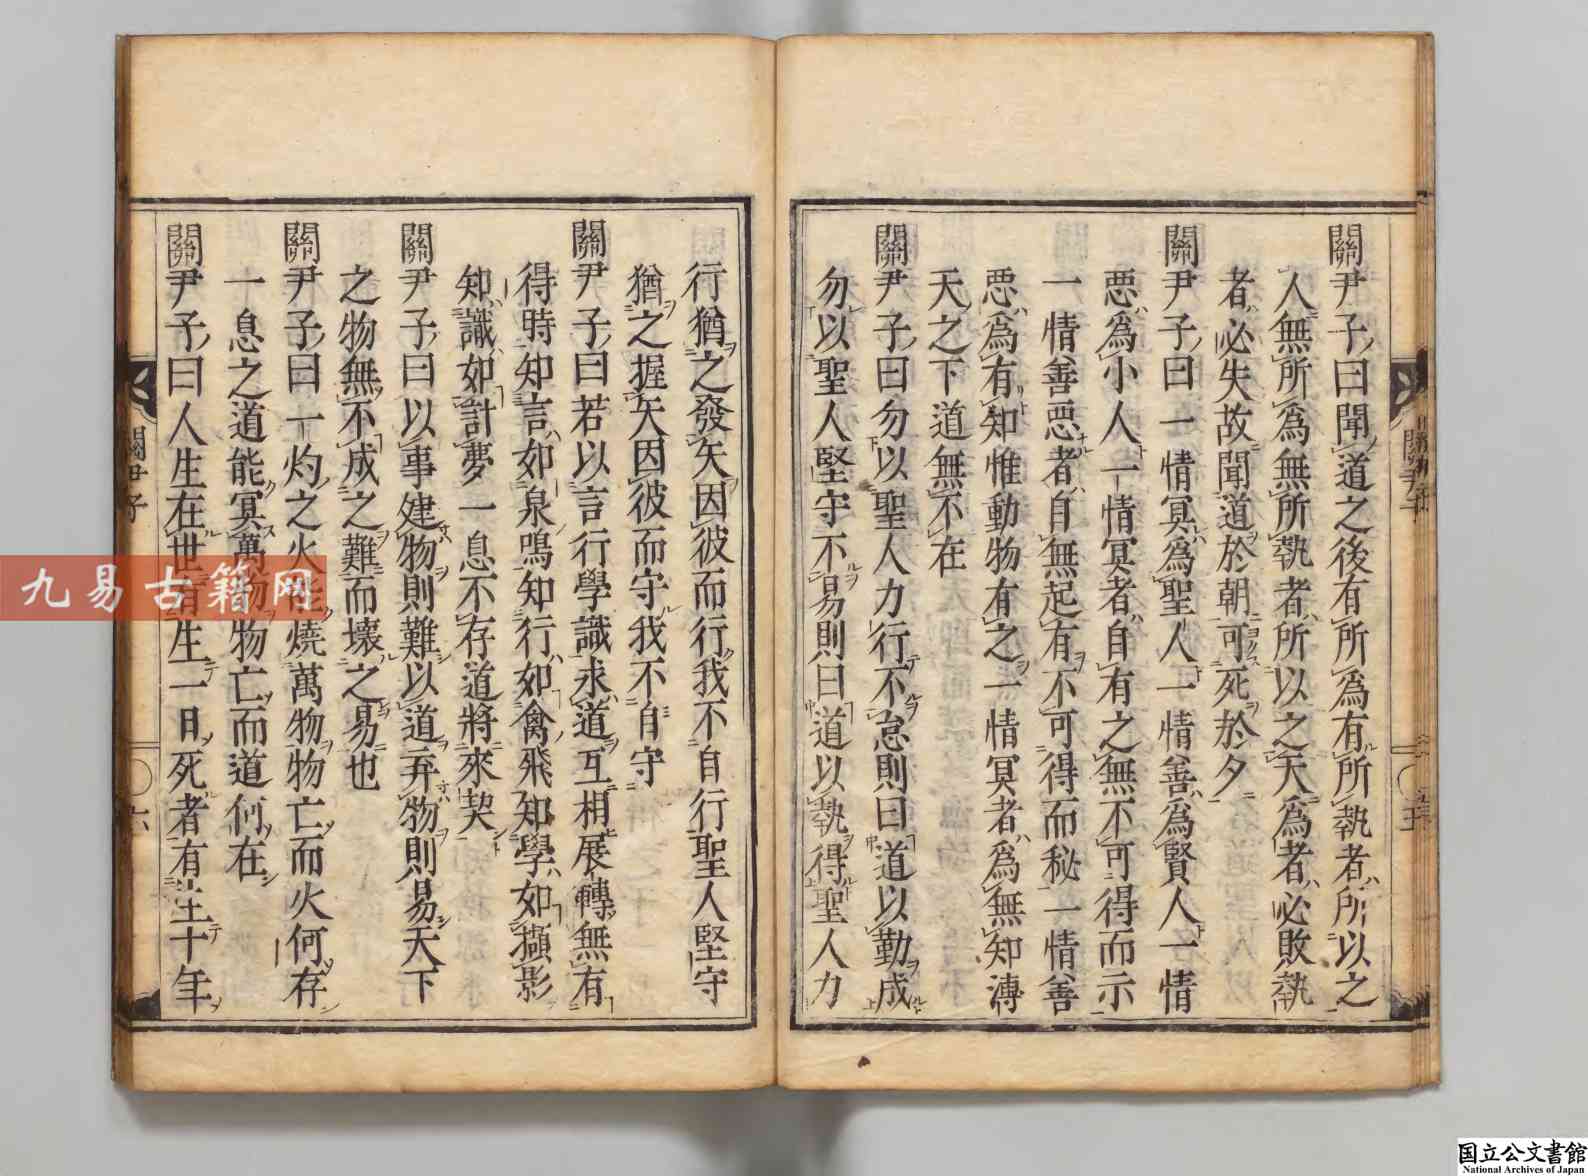 關尹子曰聞道之後有所爲有所執者所以之
人無所爲無所執者所以之天爲者必敗執
者必失故聞道於朝可死於夕
關尹子曰一情冥爲聖人一情善爲賢人一情
惡爲小人一情冥者自有之無不可得而示
一情善惡者自無起有不可得而秘一情善
惡爲有知惟動物有之一情冥者爲無知溥
天之下道無不在
關尹子曰勿以聖人力行不怠則曰道以勤成
勿以聖人堅守不易則曰道以執得聖人力
行猶之發矢因彼而行我不自行聖人堅守
猶之握矢因彼而守我不自守
關尹子曰若以言行學識求道互相展轉無有
得時知言如泉鳴知行如禽飛知學如擷影
知識如計夢一息不存道將來契
關尹子曰以事建物則難以道弃物則易天下
之物無不成之難而壞之易也
關尹子曰一灼之火能燒萬物物亡而火何存
一息之道能冥萬物物亡而道何在
關尹子曰人生在世有生一日死者有生十年
關尹子
六
九易古籍网
国立公文書館
National Archives of Japan